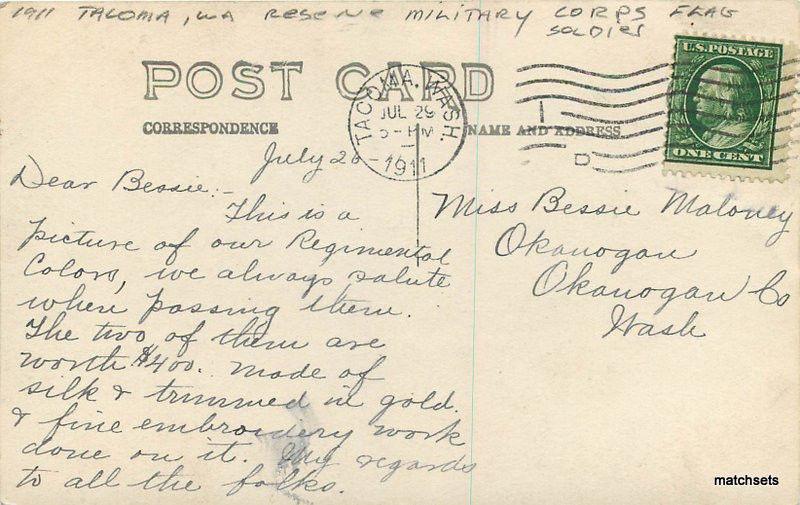 1911 TACOMA, WA RESERVE MILITARY CORPS FLAG
SOLDIER
POST CARD
CORRESPONDENCE
NAME AND ADDRESS
TACOMA, WASH.
JUL 29
5-PM
1911
1
D
U.S. POSTAGE
ONE CENT
July 26-
Dear Bessie:-
This is a
picture of our Regimental
Colors, we always salute
when passing them.
The two of them are
worth $400. made of
silk & trimmed in gold.
& fine embroidery work
done on it. My regards
to all the folks.
Miss Bessie Maloney
Okanogan
Okanogan Co
Wash
matchsets